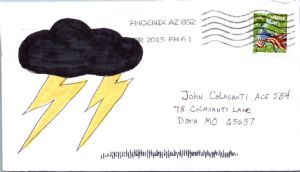 PHOENIX AZ 852
2015 PM 6 1
John Colasanti ACE 584
78 COLASANTI LANE
DORA MO 65637